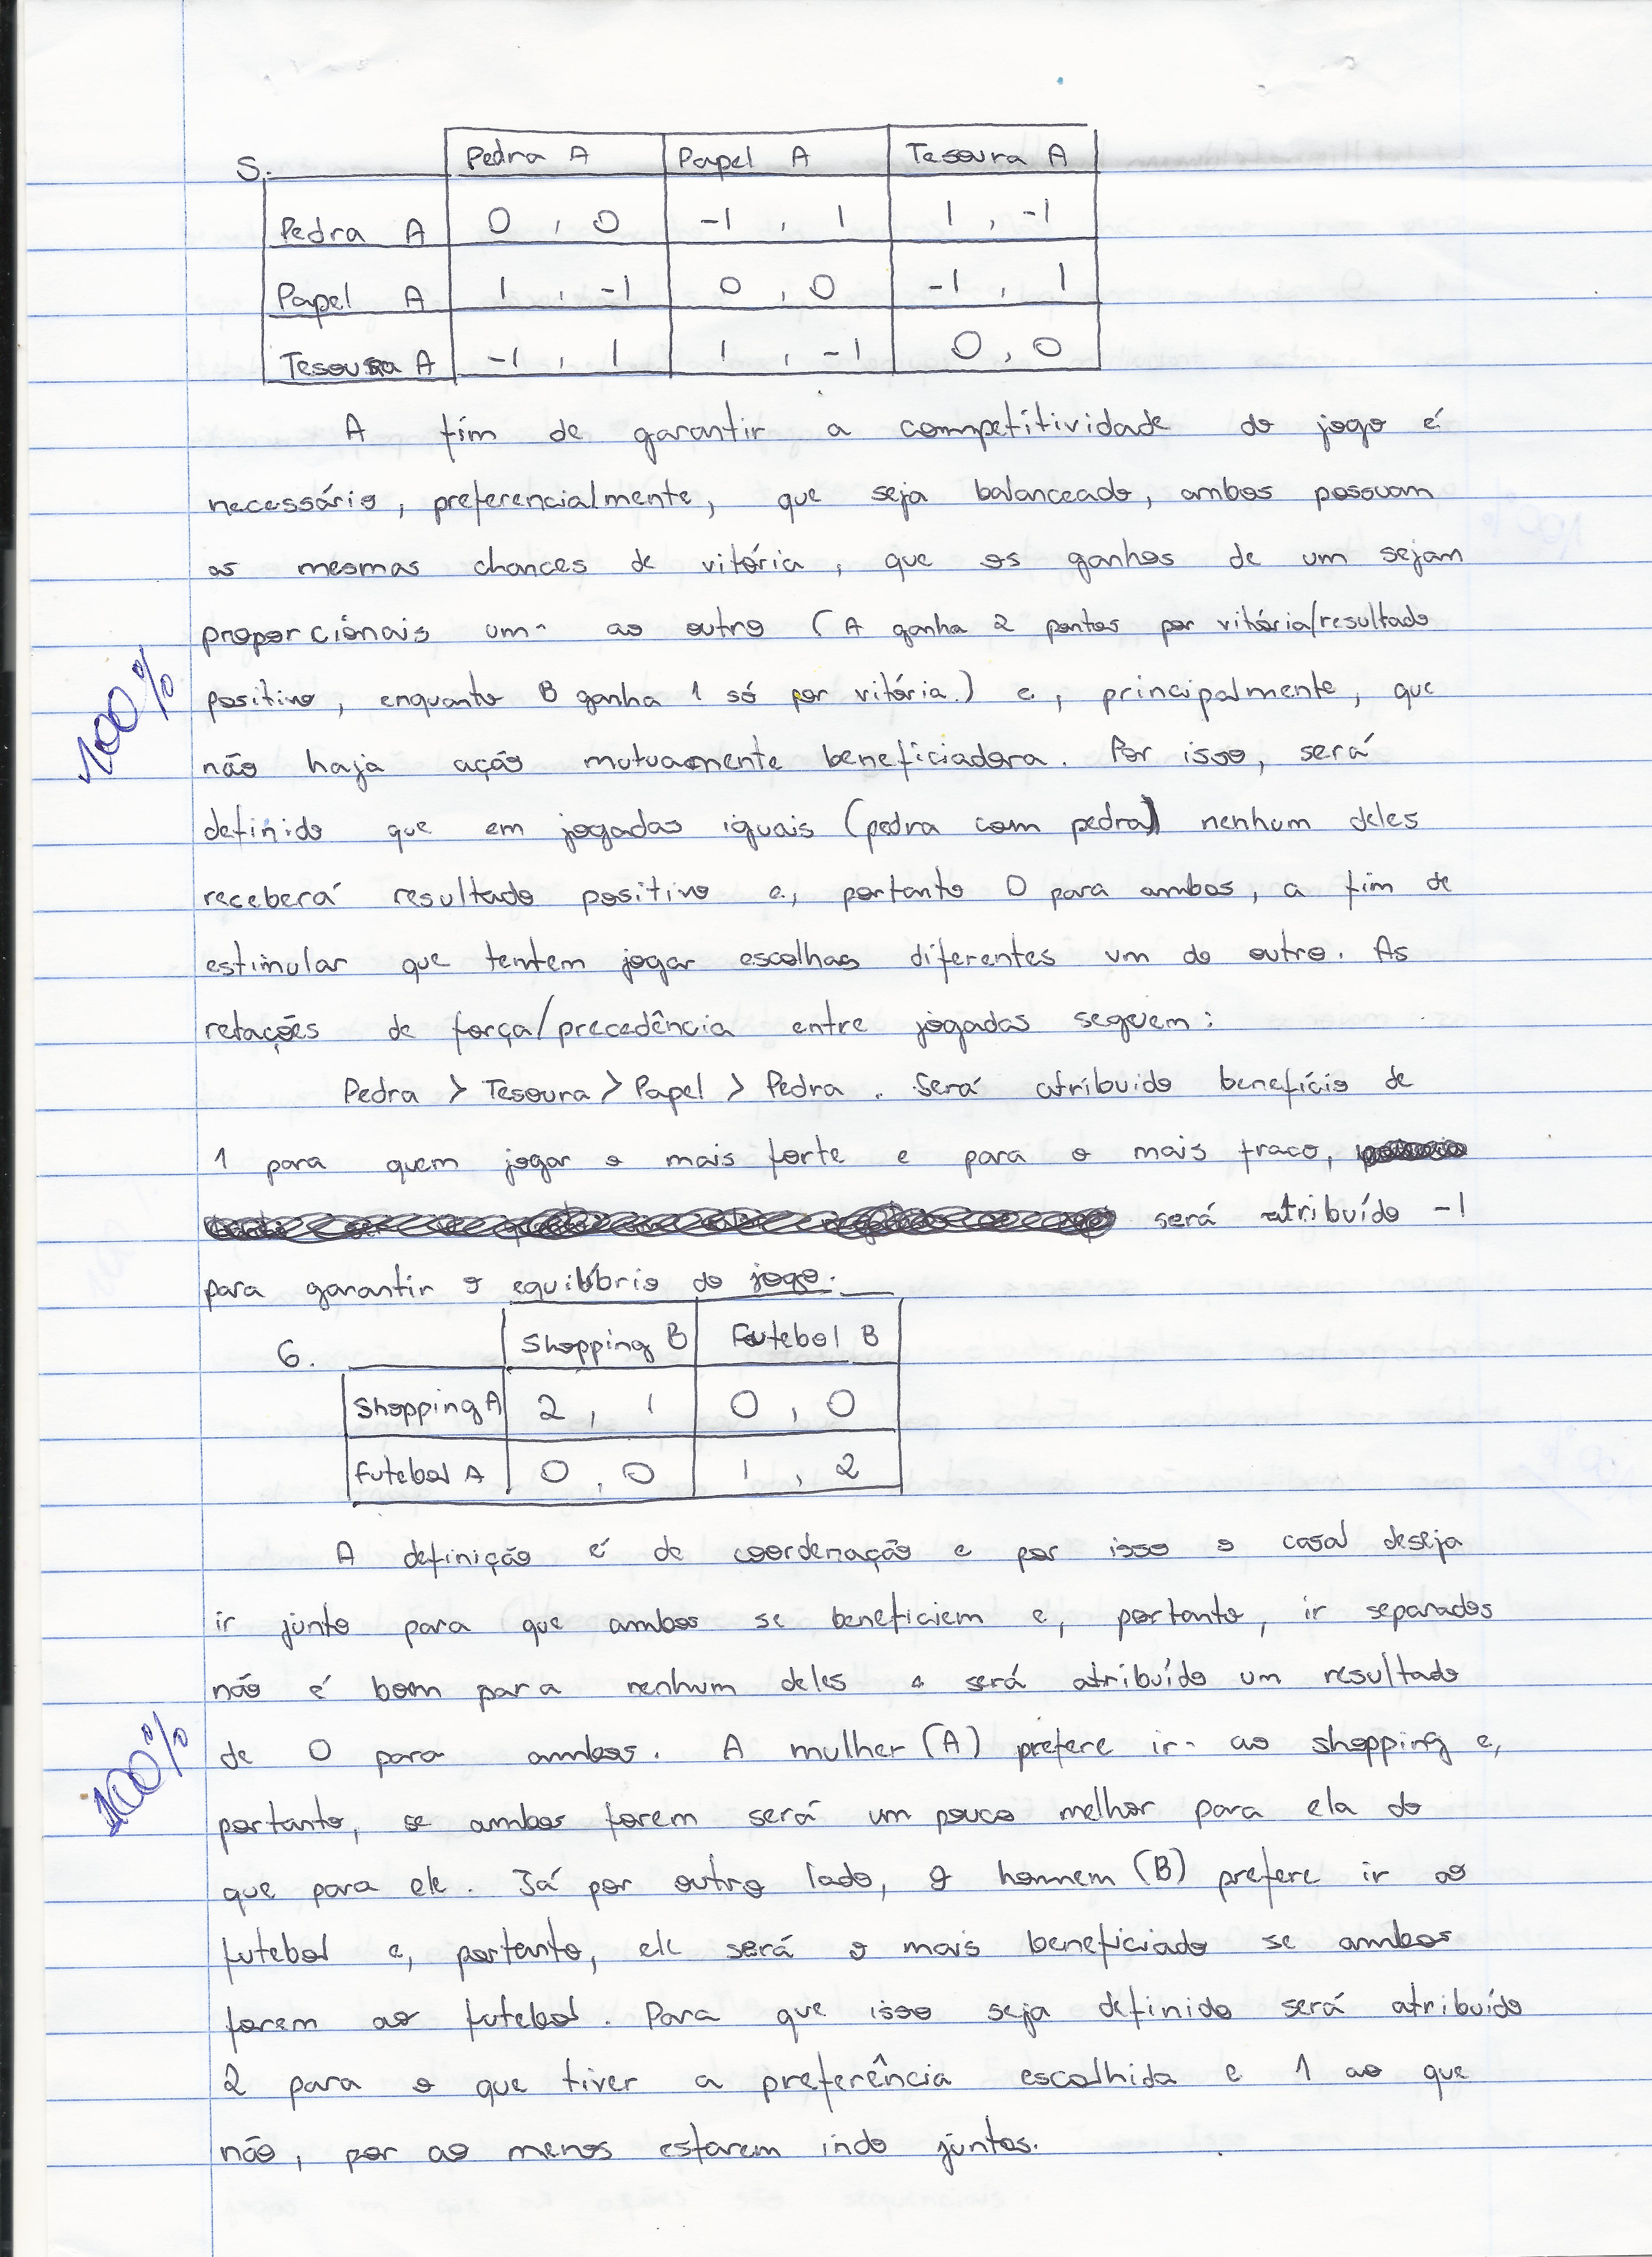 5.
Pedra A Papel A Tesoura A
Pedra A 0 , 0 -1 , 1 1 , -1
Papel A 1 , -1 0 , 0 -1 , 1
Tesoura A -1 , 1 1 , -1 0 , 0
A fim de garantir a competitividade do jogo é
necessário, preferencialmente, que seja balanceado, ambos possuam
as mesmas chances de vitória, que os ganhos de um sejam
proporcionais um ao outro (A ganha 2 pontos por vitória/resultado
positivo, enquanto B ganha 1 só por vitória.) e, principalmente, que
100%
não haja ação mutuamente beneficiadora. Por isso, será
definido que em jogadas iguais (pedra com pedra) nenhum deles
receberá resultado positivo e, portanto 0 para ambos, a fim de
estimular que tentem jogar escolhas diferentes um do outro. As
relações de força/precedência entre jogadas seguem:
Pedra > Tesoura > Papel > Pedra. Será atribuido benefício de
1 para quem jogar o mais forte e para o mais fraco,
será atribuído -1
para garantir o equilíbrio do jogo.
6.
Shopping B Futebol B
Shopping A 2 , 1 0 , 0
Futebol A 0 , 0 1 , 2
A definição é de coordenação e por isso o casal deseja
ir junto para que ambos se beneficiem e, portanto, ir separados
não é bom para nenhum deles e será atribuído um resultado
de 0 para ambos. A mulher (A) prefere ir ao shopping e,
100%
portanto, se ambos forem será um pouco melhor para ela do
que para ele. Já por outro lado, o homem (B) prefere ir ao
futebol e, portanto, ele será o mais beneficiado se ambos
forem ao futebol. Para que isso seja definido será atribuído
2 para o que tiver a preferência escolhida e 1 ao que
não, por ao menos estarem indo juntos.